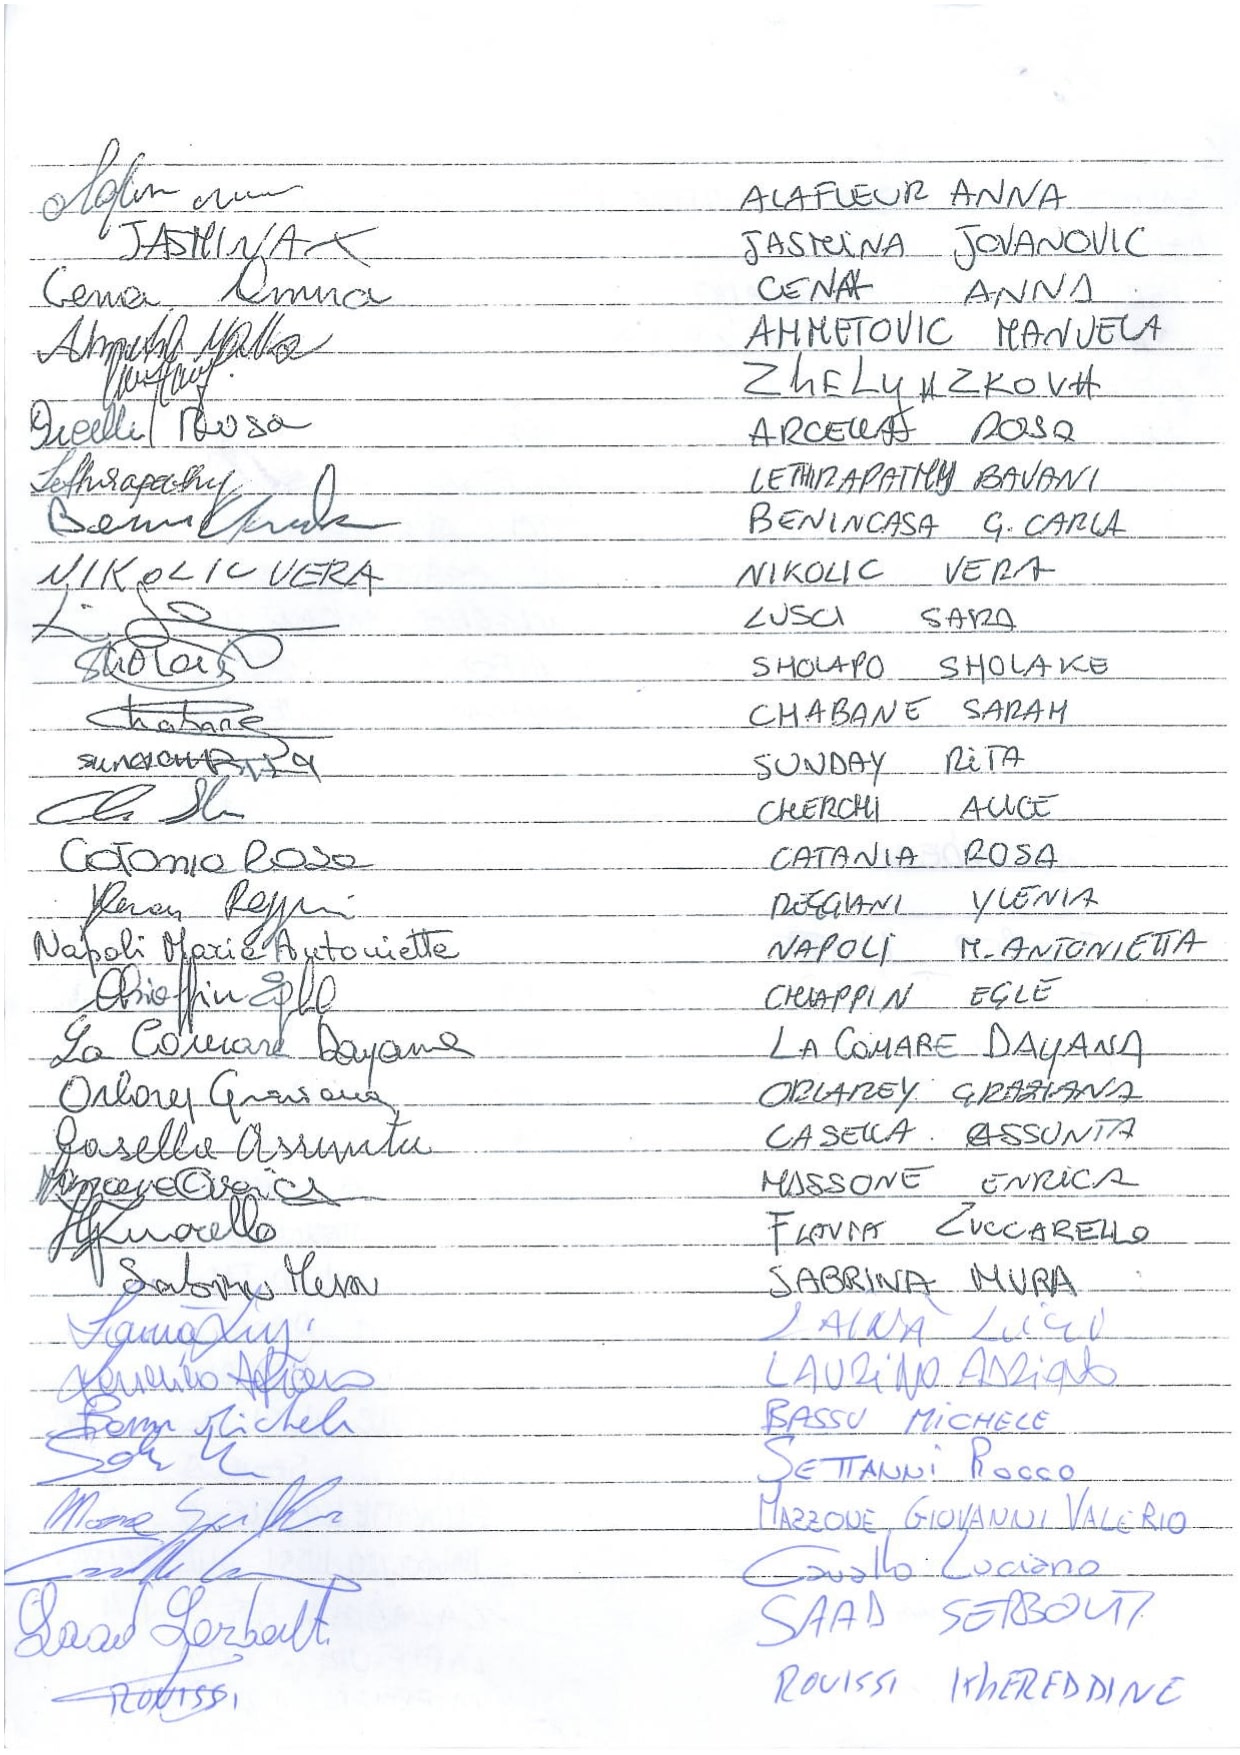 ALAFLEUR ANNA
JASMINA JASMINA JOVANOVIC
Cena Anna CENA ANNA
AHMETOVIC MANUELA
ZHELYAZKOVA
Rosa ARCELLA ROSA
Lethirapathy LETHIRAPATHY BAVANI
BENINCASA G. CARLA
NIKOLIC VERA NIKOLIC VERA
LUSCI SARA
SHOLAPO SHOLAKE
Chabane CHABANE SARAH
SUNDAY RiTA
CHERCHI ALICE
Catania Rosa CATANIA ROSA
REGGIANI YLENIA
Napoli Maria Antonietta NAPOLI M. ANTONIETTA
Chiappin Egle CHIAPPIN EGLE
La Comare Dayana LA COMARE DAYANA
Orlarey Graziana ORLAREY GRAZIANA
Casella Assunta CASELLA ASSUNTA
MASSONE ENRICA
FLAVIA ZUCCARELLO
Sabrina Mura SABRINA MURA
LAINÀ LUIGI
LAURINO ADRIANO
Michele BASSU MICHELE
SETTANNI ROCCO
MAZZONE GIOVANNI VALERIO
Cavallo Luciano
Saad SAAD SERBOUTI
ROUISSI ROUISSI KHEREDDINE